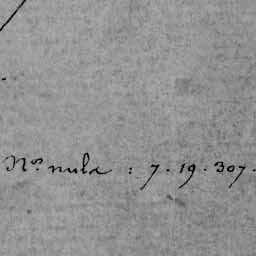 Nos. nula : 7. 19. 307.